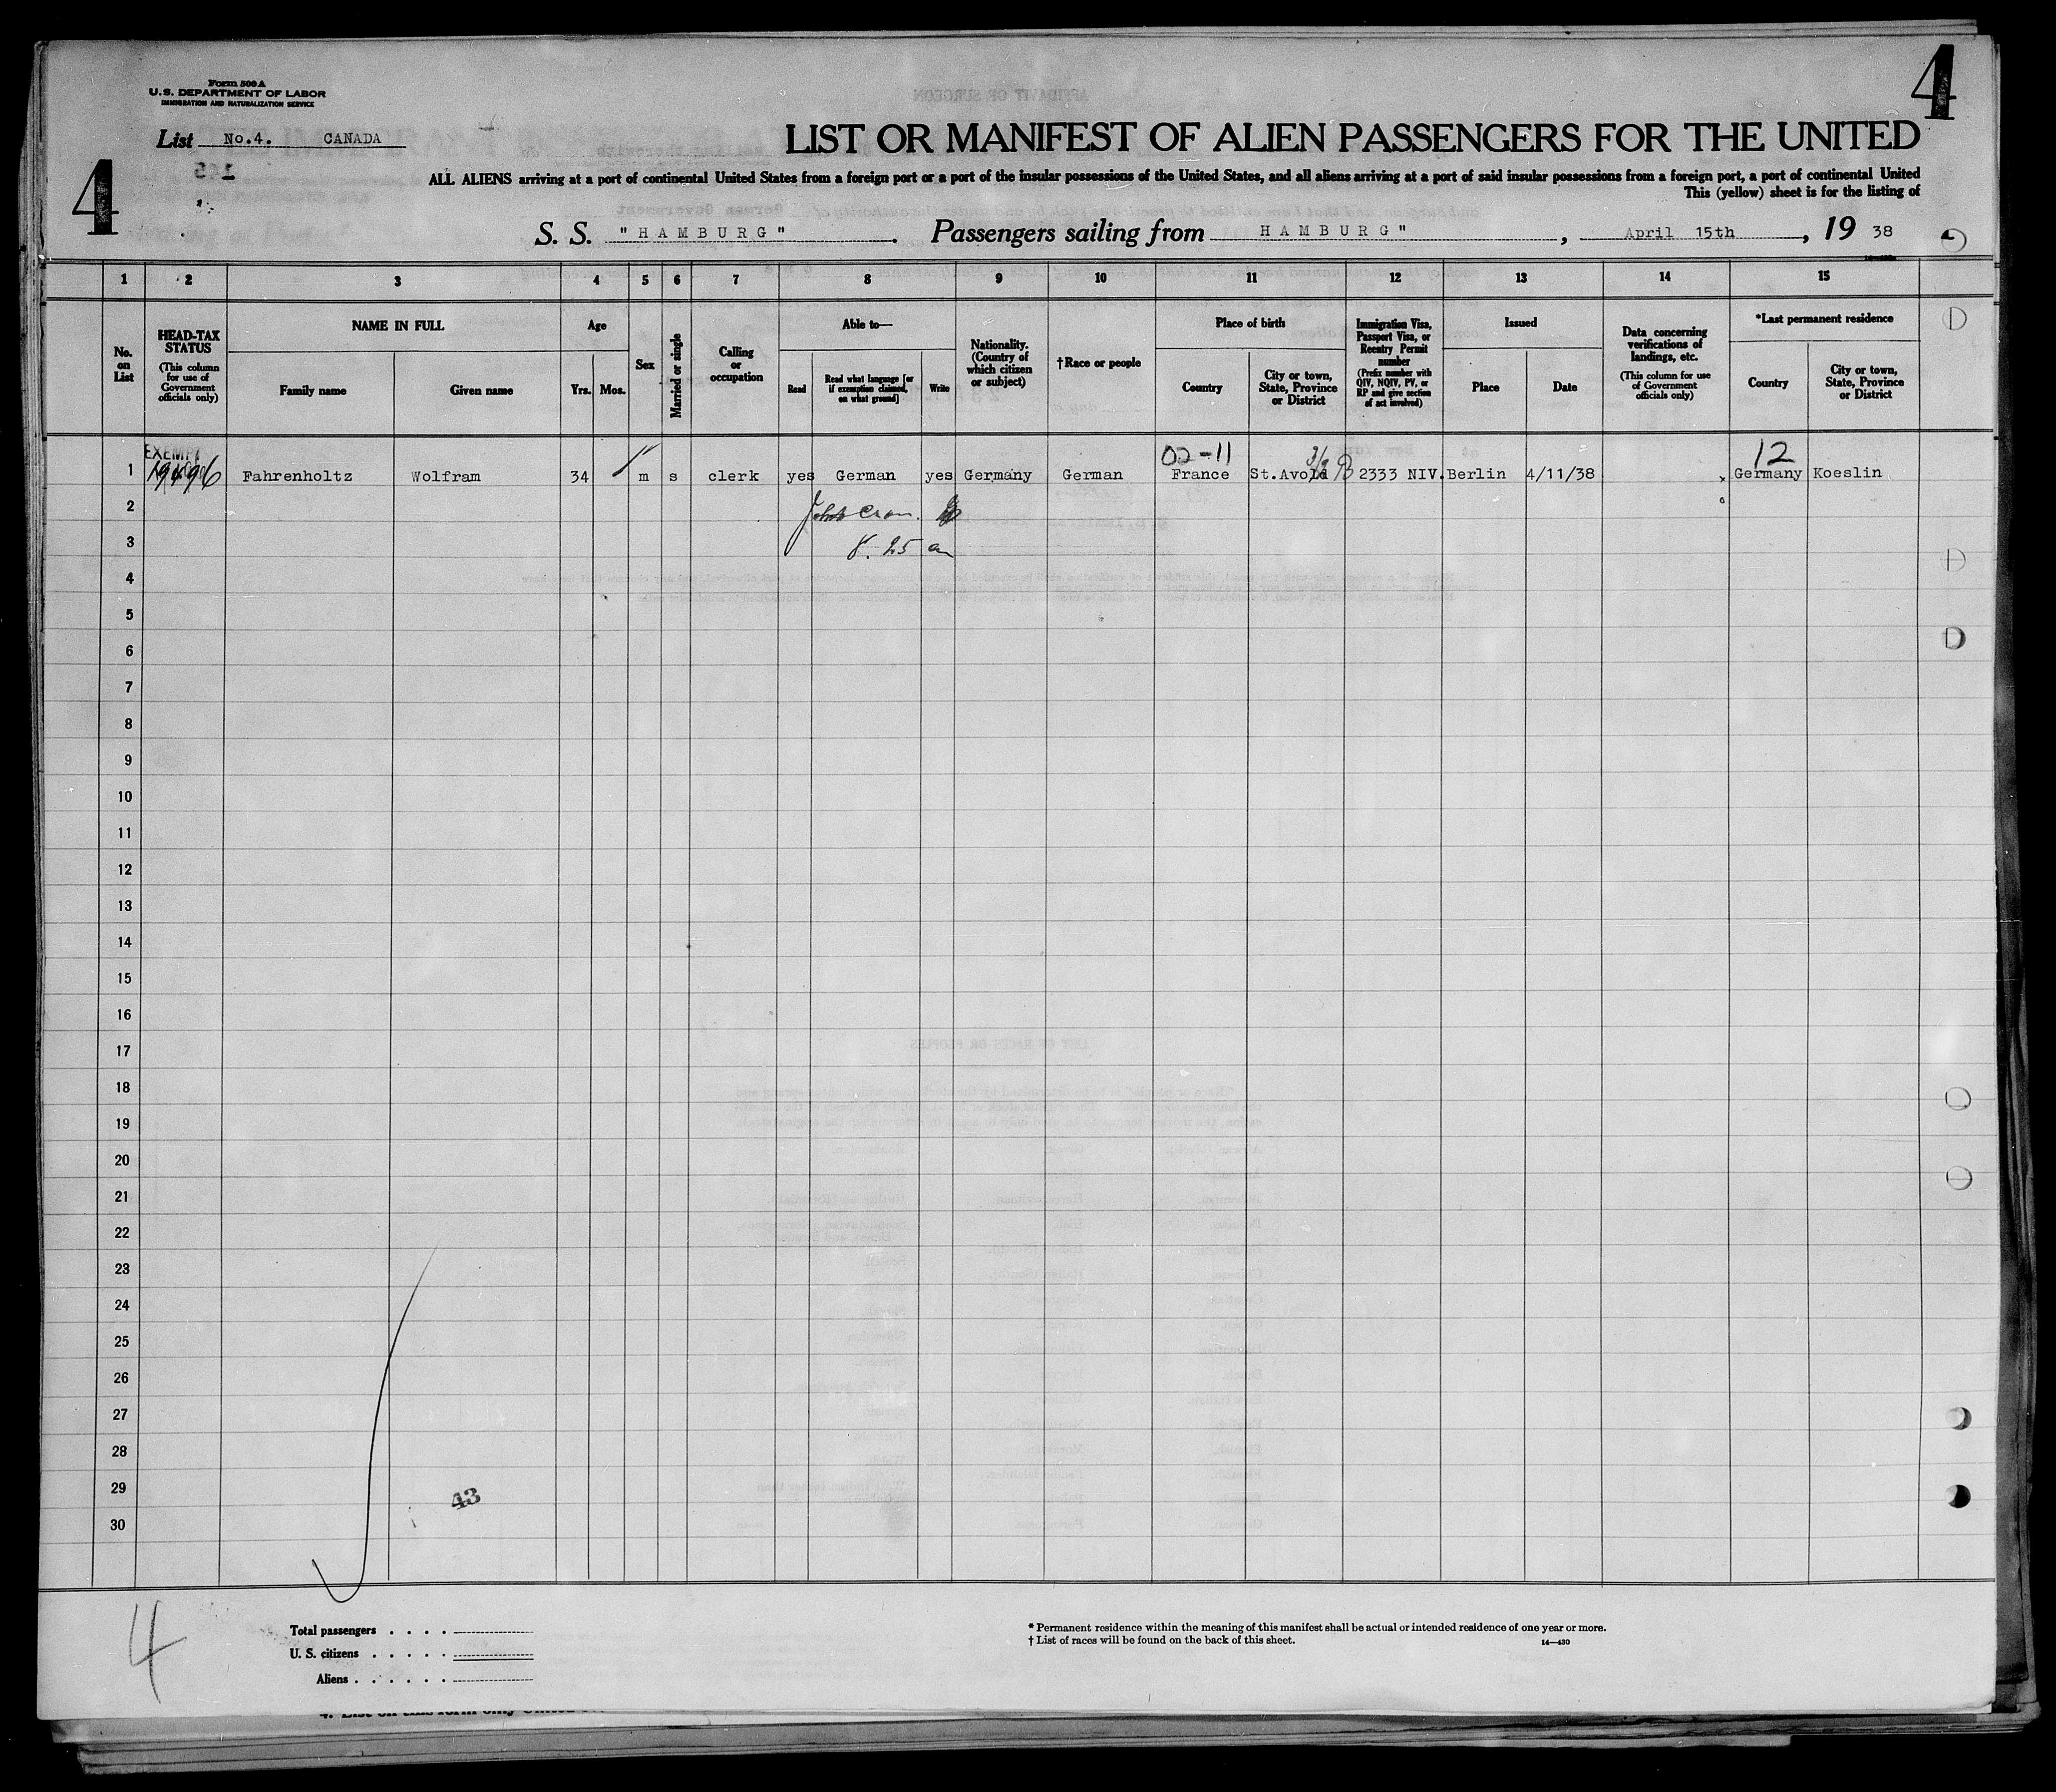 4
Form 500 A
U.S. DEPARTMENT OF LABOR
IMMIGRATION AND NATURALIZATION SERVICE
List No.4. CANADA
LIST OR MANIFEST OF ALIEN PASSENGERS FOR THE UNITED
4
ALL ALIENS arriving at a port of continental United States from a foreign port or a port of the insular possessions of the United States, and all aliens arriving at a port of said insular possessions from a foreign port, a port of continental United
This (yellow) sheet is for the listing of
S. S. "HAMBURG". Passengers sailing from HAMBURG", April 15th, 19 38
1 2 3 4 5 6 7 8 9 10 11 12 13 14 15
No. on List
HEAD-TAX STATUS
(This column for use of Government officials only)
NAME IN FULL
Family name
Given name
Age
Yrs. Mos.
Sex
Married or single
Calling or occupation
Able to—
Read
Read what language [or if exemption claimed, on what ground]
Write
Nationality. (Country of which citizen or subject)
†Race or people
Place of birth
Country
City or town, State, Province or District
Immigration Visa, Passport Visa, or Reentry Permit number
(Prefix number with QIV, NQIV, PV, or RP and give section of act involved)
Issued
Place
Date
Data concerning verifications of landings, etc.
(This column for use of Government officials only)
*Last permanent residence
Country
City or town, State, Province or District
EXEMPT
02-11
12
1 Fahrenholtz Wolfram 34 m s clerk yes German yes Germany German France St.Avold 2333 NIV. Berlin 4/11/38 Germany Koeslin
2
3 8.25 am
4
5
6
7
8
9
10
11
12
13
14
15
16
17
18
19
20
21
22
23
24
25
26
27
28
29
43
30
4
Total passengers . . . .
U. S. citizens . . . . .
Aliens . . . . . .
* Permanent residence within the meaning of this manifest shall be actual or intended residence of one year or more.
† List of races will be found on the back of this sheet.
14—430